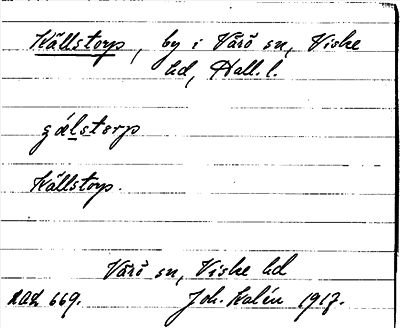 Källstorp, by i Värö sn, Viske
hd, Hall. l.
gǽlstorp
Källstorp.
Värö sn, Viske hd
RAÄ 669. Joh. Kalén 1917.